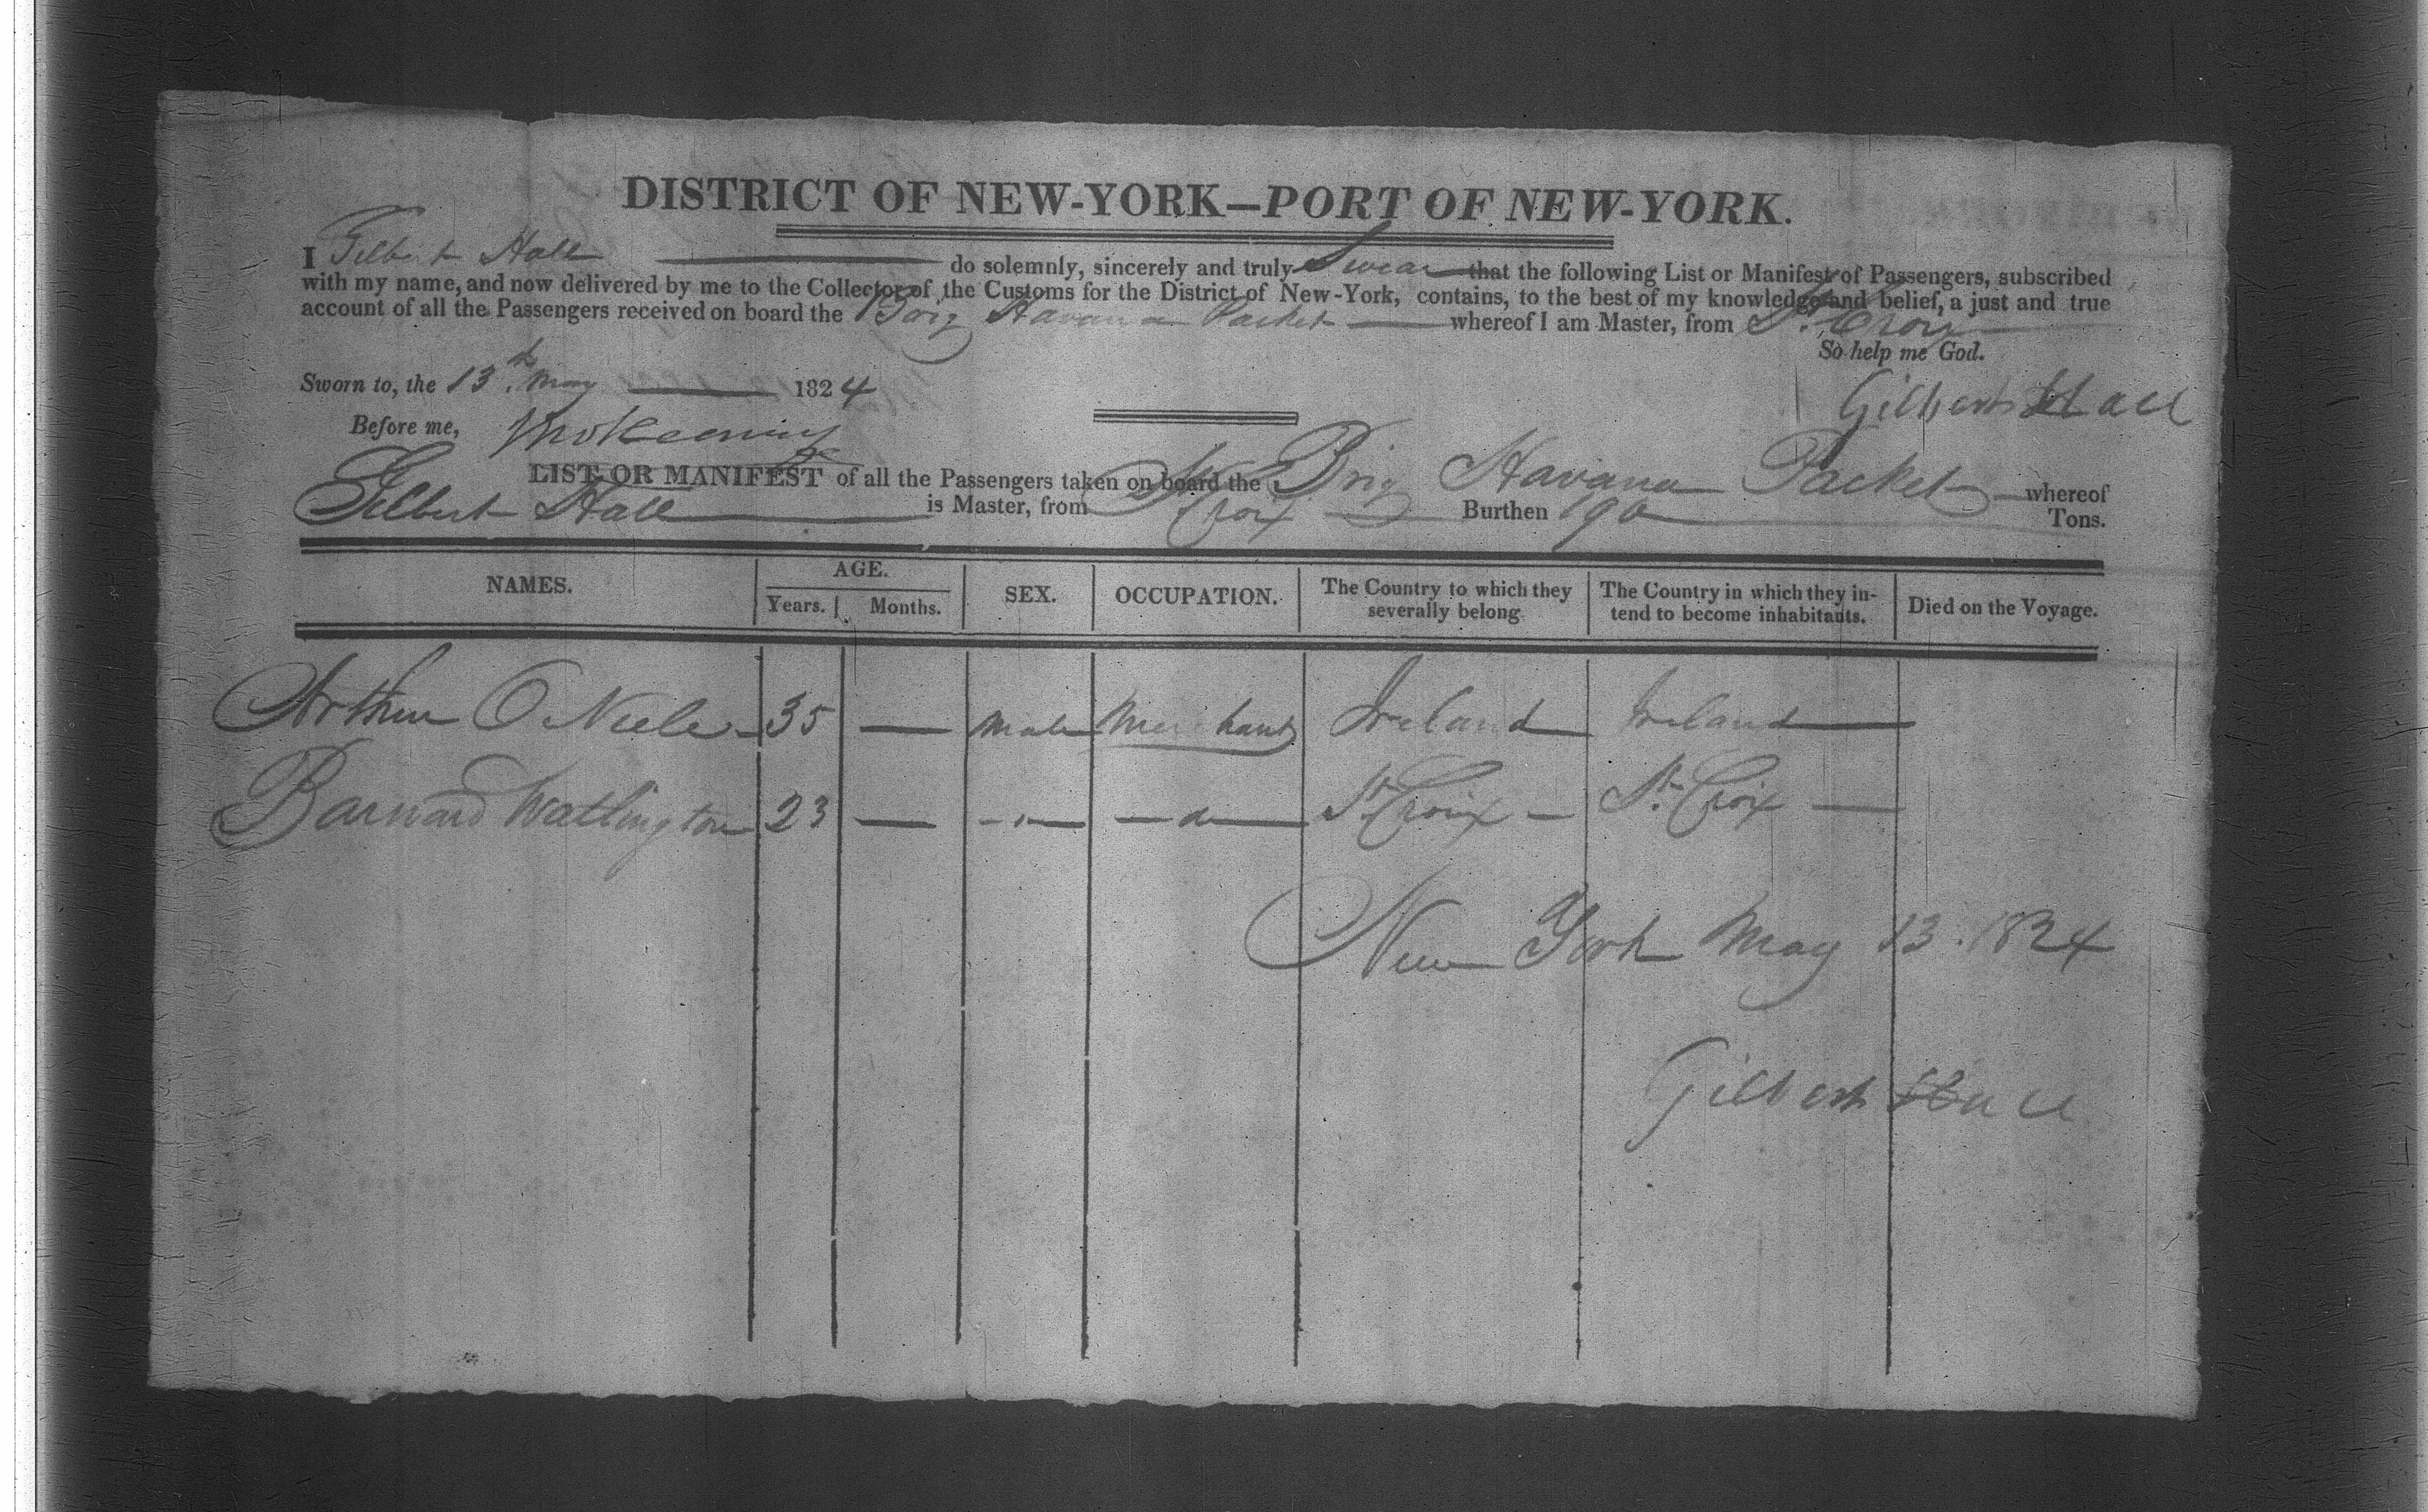 DISTRICT OF NEW-YORK—PORT OF NEW-YORK.
I Gilbert Hall do solemnly, sincerely and truly Swear that the following List or Manifest of Passengers, subscribed
with my name, and now delivered by me to the Collector of the Customs for the District of New-York, contains, to the best of my knowledge and belief, a just and true
account of all the Passengers received on board the Brig Havana Packet whereof I am Master, from St. Croix
So help me God.
Sworn to, the 13th May 1824
Gilbert Hall
Before me,
LIST OR MANIFEST of all the Passengers taken on board the Brig Havana Packet whereof
Gilbert Hall is Master, from St Croix Burthen 190 Tons.
NAMES. AGE. Years. Months. SEX. OCCUPATION. The Country to which they severally belong The Country in which they intend to become inhabitants. Died on the Voyage.
Arthur O Neele 35 — Male Merchant Ireland Ireland
Barnard Watlington 23 — -"- — d — St Croix — St. Croix —
New York May 13. 1824
Gilbert Hall